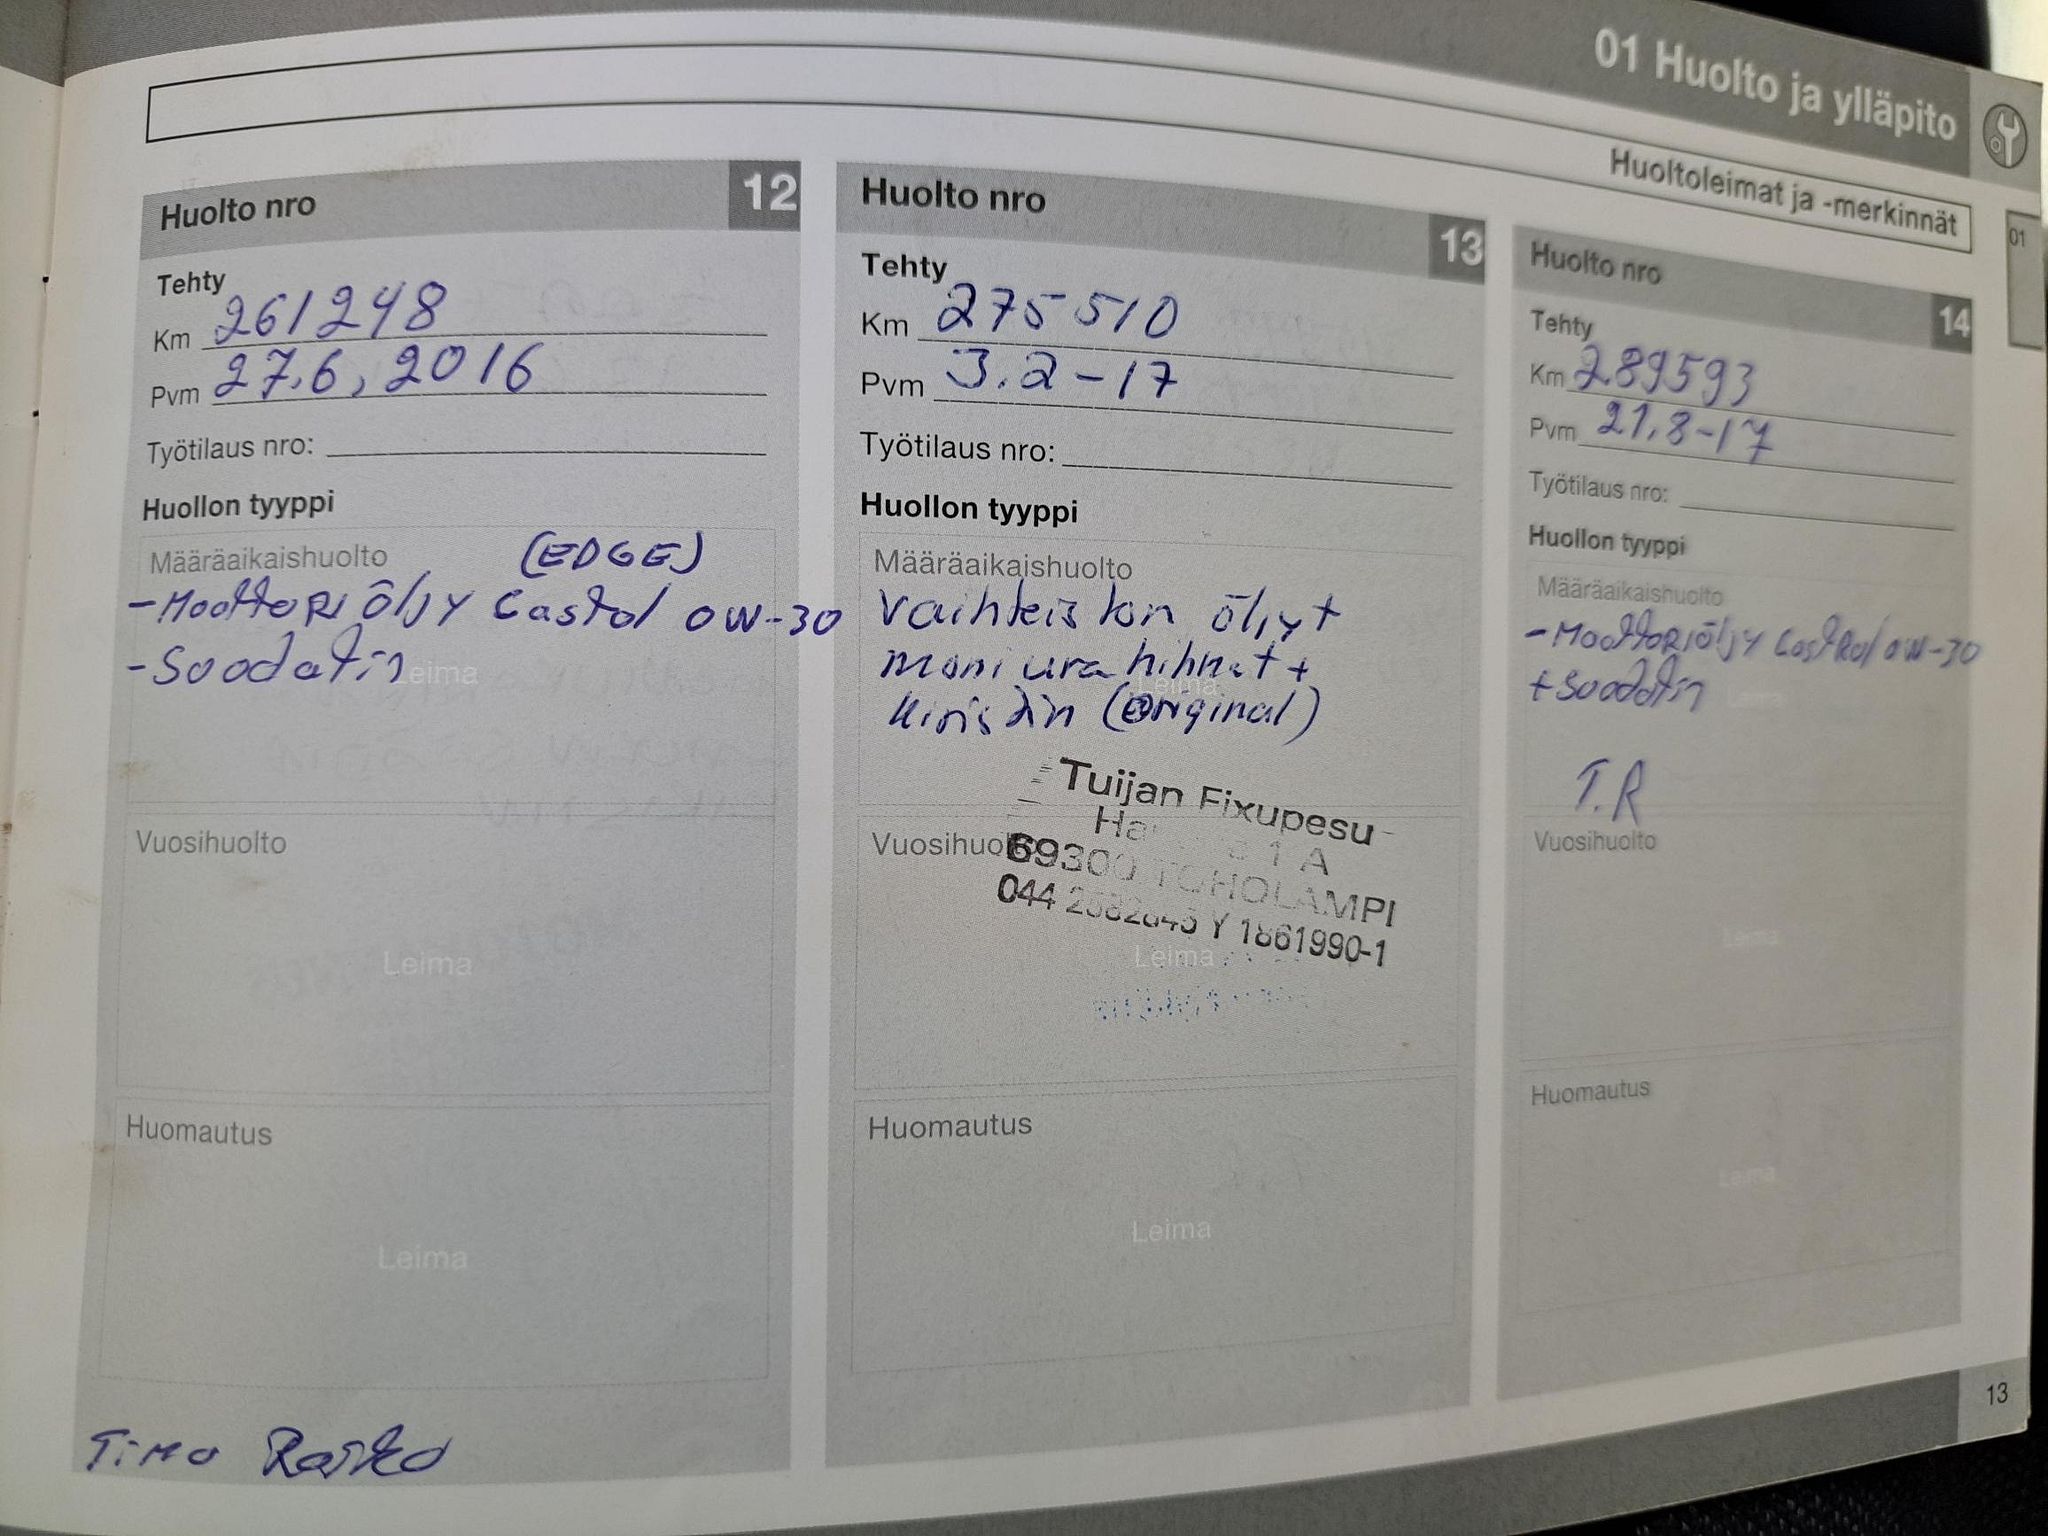 01 Huolto ja ylläpito
Huoltoleimat ja -merkinnät
01
Huolto nro 12
Tehty
Km 261248
Pvm 27.6, 2016
Työtilaus nro:
Huollon tyyppi
Määräaikaishuolto (EDGE)
- Moottori öljy Castol 0W-30
- Suodatin
Leima
Vuosihuolto
Leima
Huomautus
Leima
Timo
Huolto nro 13
Tehty
Km 275510
Pvm 3.2-17
Työtilaus nro:
Huollon tyyppi
Määräaikaishuolto
Vaihteiston öljyt
moniurahihnat +
kiristin (Original)
Leima
Tuijan Fixupesu
1 A
69300 TOHOLAMPI
044 Y 1861990-1
Vuosihuolto
Leima
Huomautus
Leima
Huolto nro 14
Tehty
Km 289593
Pvm 21.8-17
Työtilaus nro:
Huollon tyyppi
Määräaikaishuolto
- Moottoriöljy Castrol 0W-30
+ Suodatin
Leima
T.R
Vuosihuolto
Leima
Huomautus
Leima
13